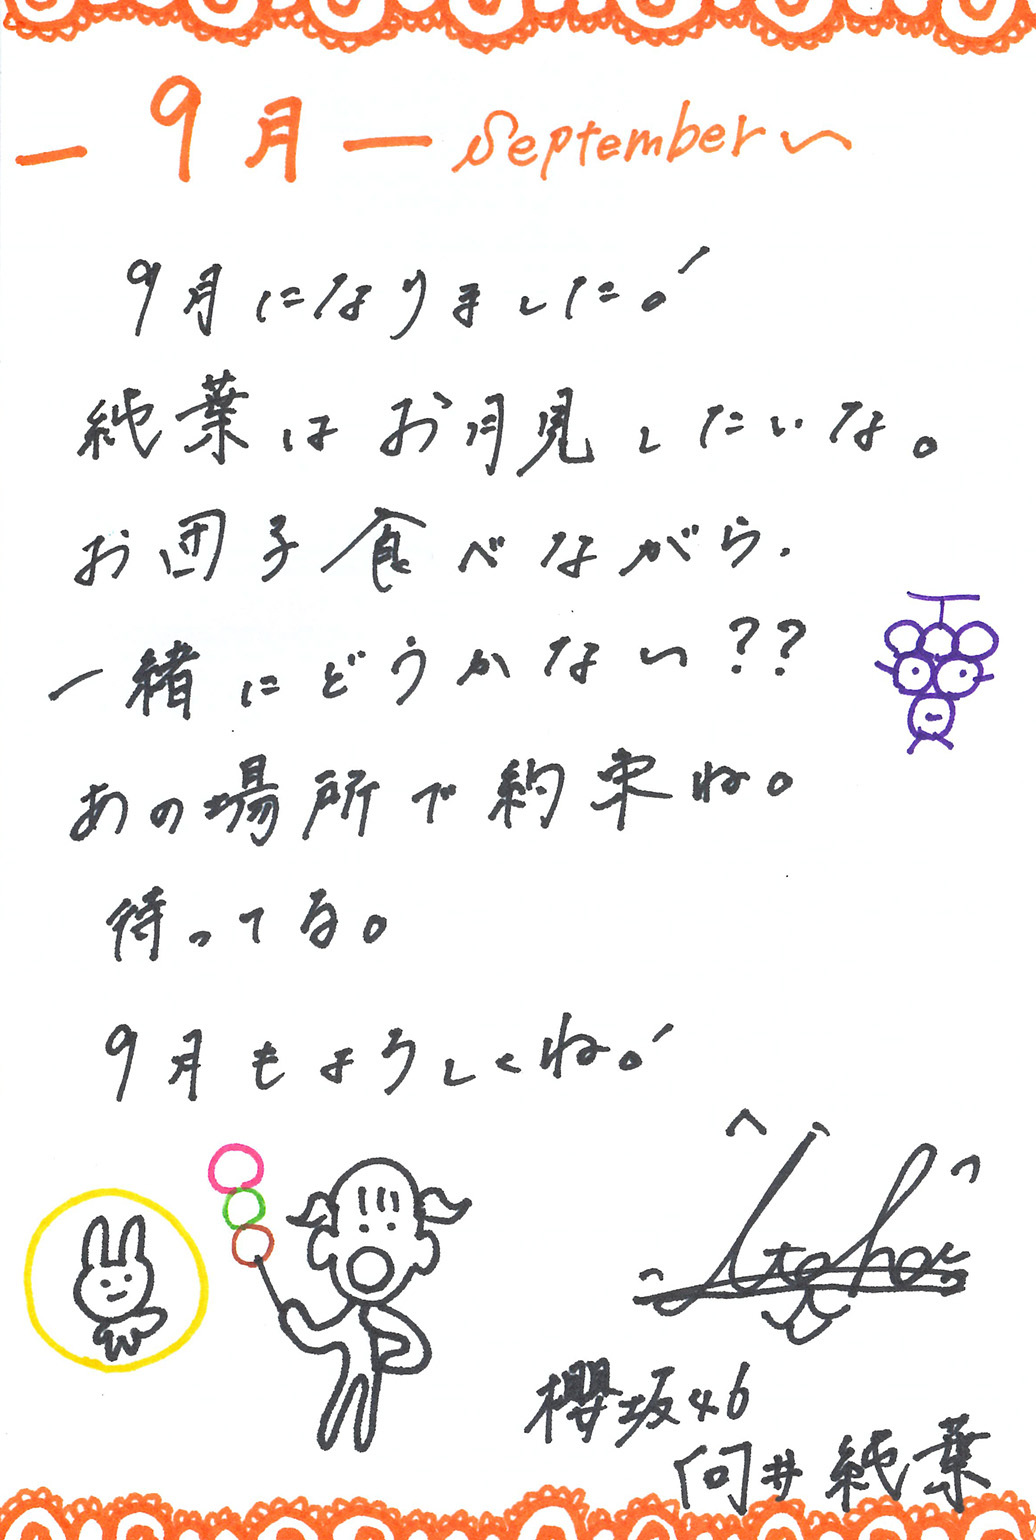 ー9月ー September〜
9月になりました！
純葉はお月見したいな。
お団子食べながら、
一緒にどうかない??
あの場所で約束ね。
待ってる。
9月もよろしくね！
Itoha
櫻坂46
向井純葉